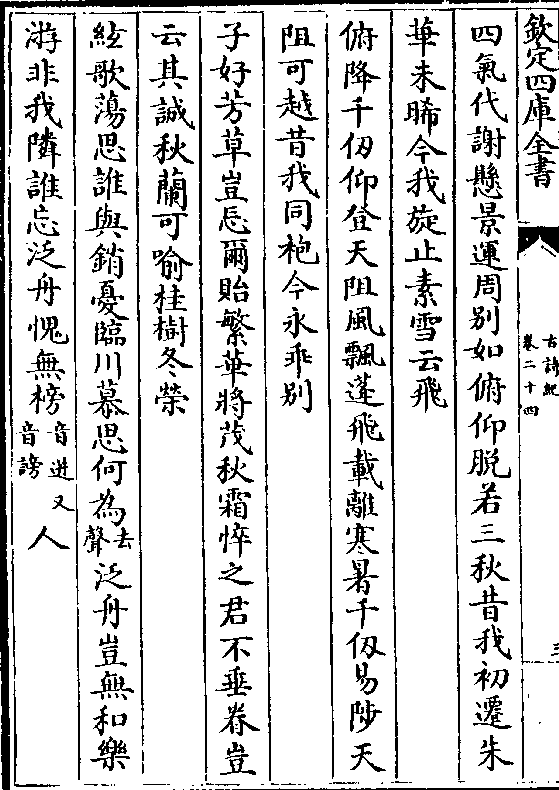 欽定四庫全書
古詩紀
卷二十四
三
四氣代謝懸景運周别如俯仰脱若三秋昔我初遷朱
華未晞今我旋止素雪云飛
俯降千仞仰登天阻風飄蓬飛載離寒暑千仭易陟天
阻可越昔我同袍今永乖别
子好芳草豈忘爾貽繁華將茂秋霜悴之君不垂眷豈
云其誠秋蘭可喻桂樹冬榮
絃歌蕩思誰與銷憂臨川慕思何為去聲泛舟豈無和樂
游非我隣誰忘泛舟愧無榜音迸又音謗人